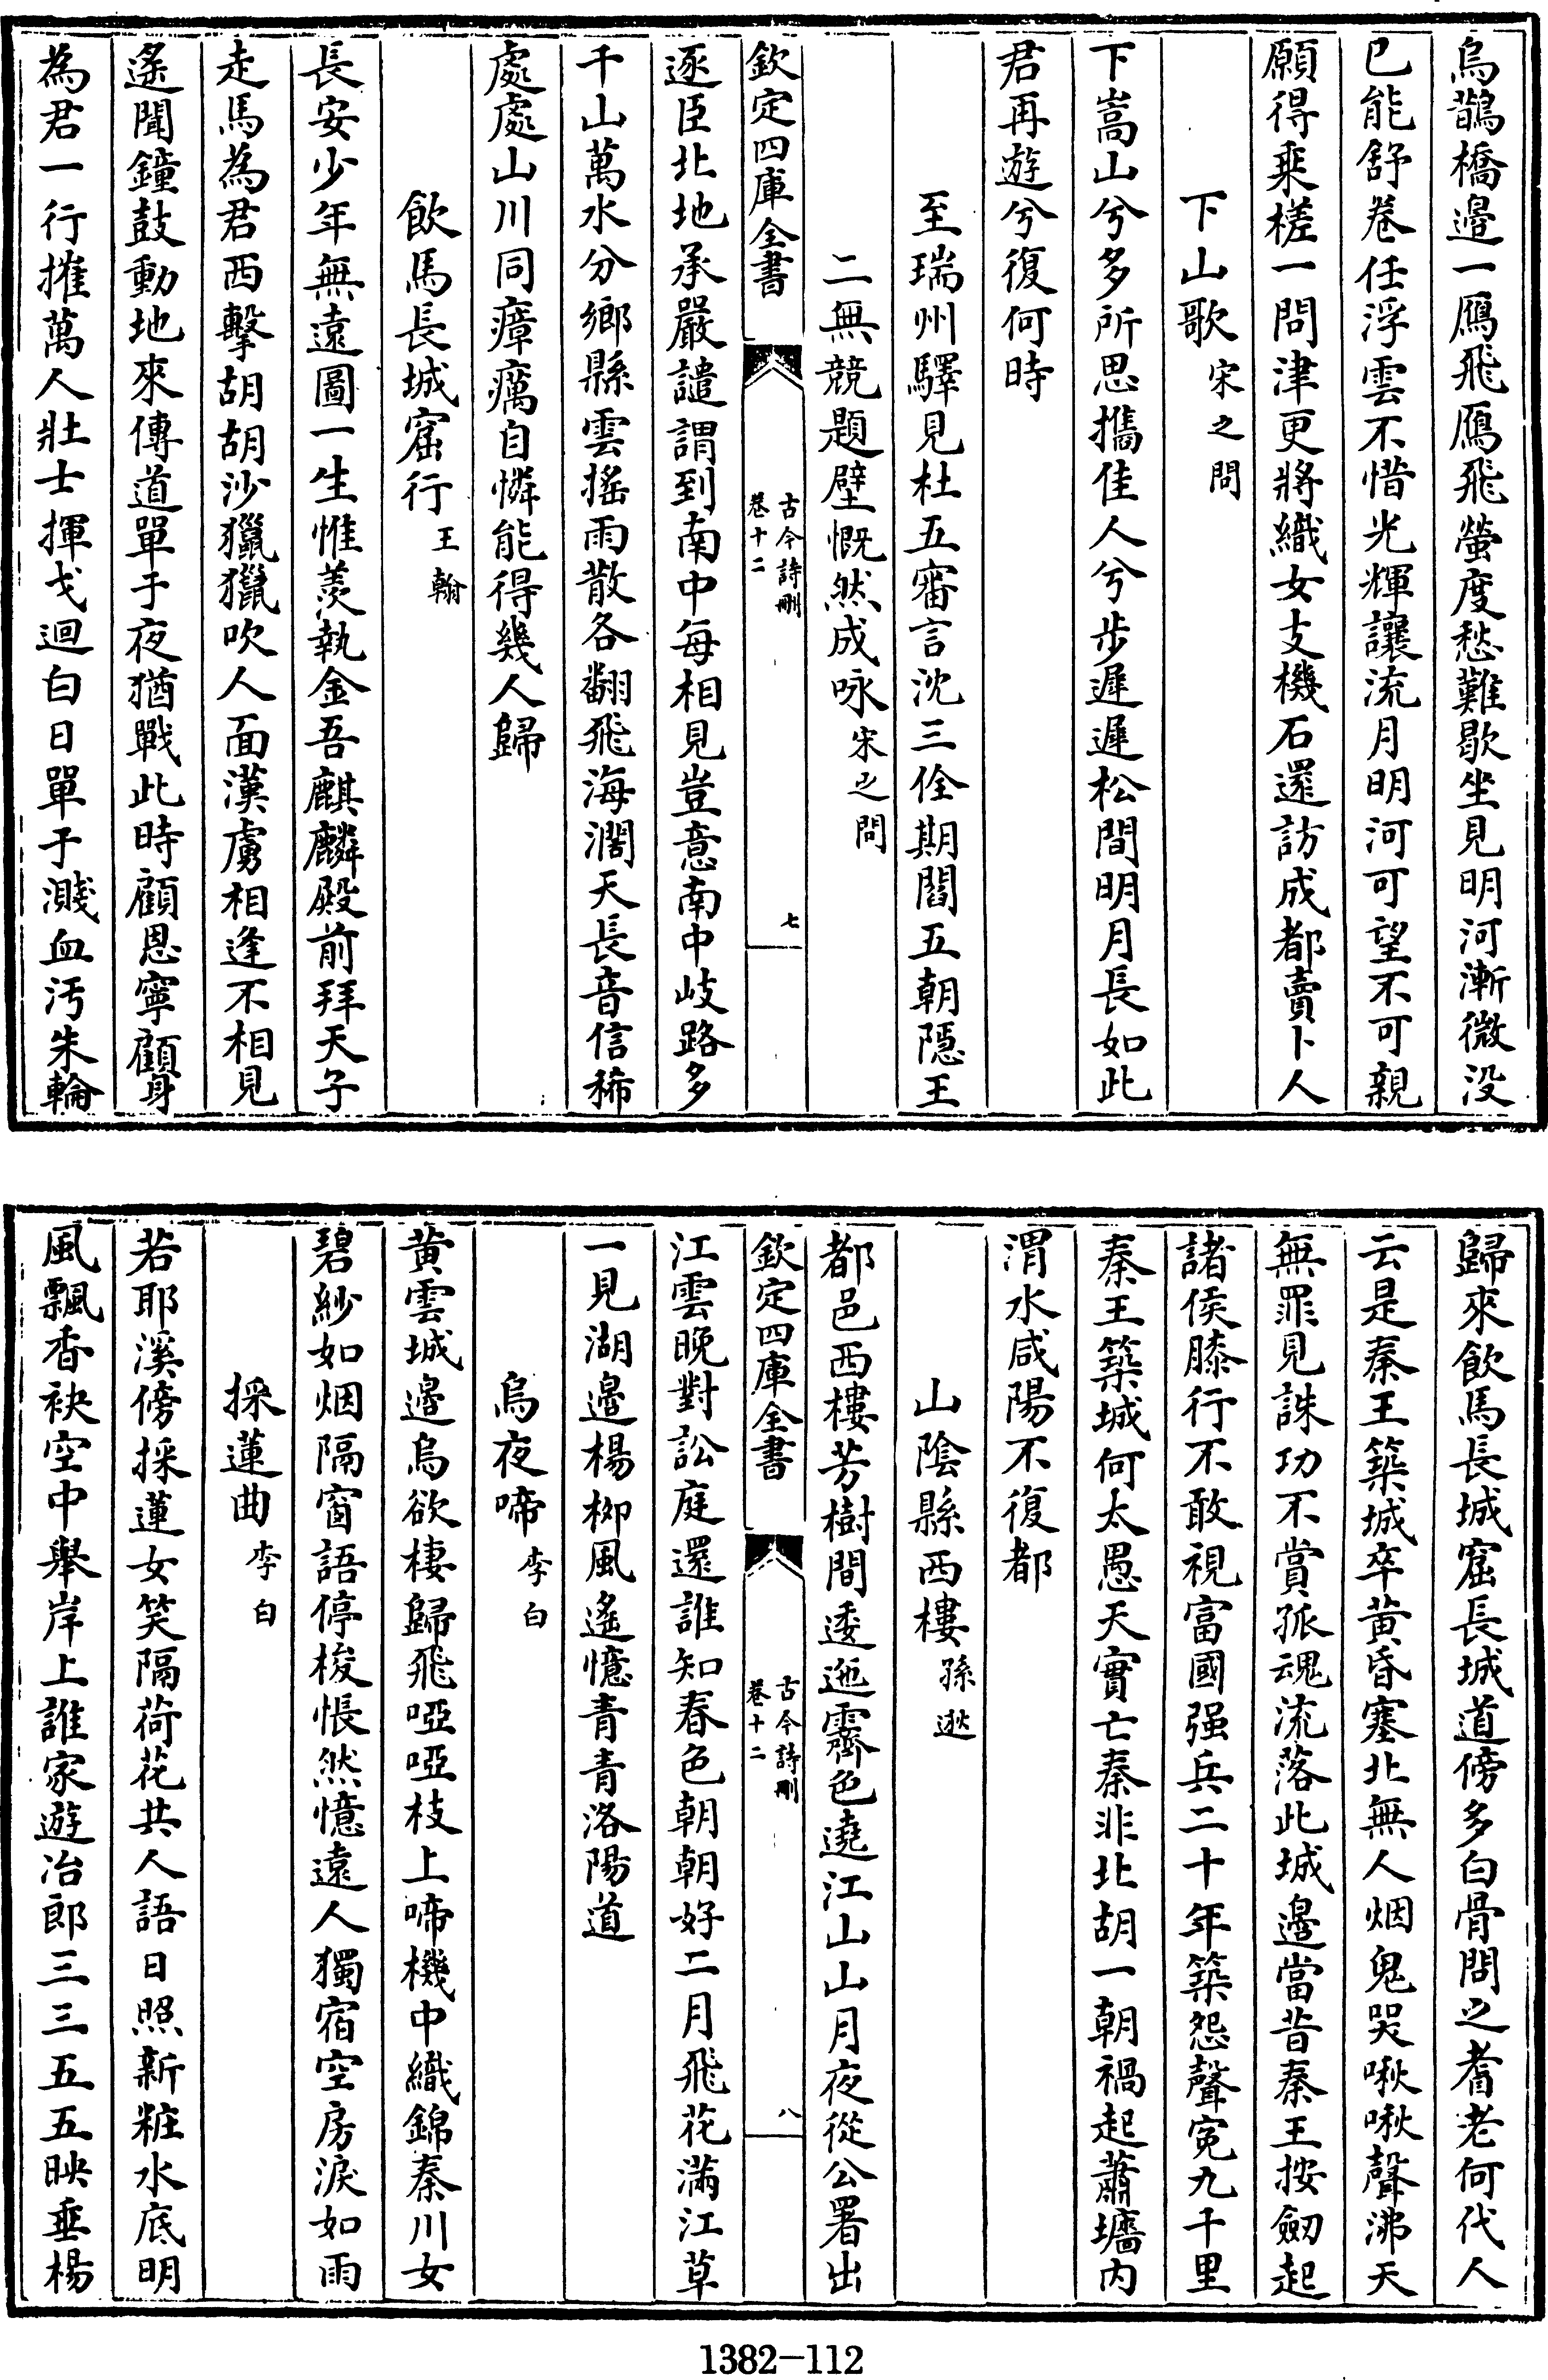 烏鵲橋邉一鴈飛鴈飛螢度愁難歇坐見明河漸微没
已能舒卷任浮雲不惜光輝讓流月明河可望不可親
願得乗槎一問津更將織女支機石還訪成都賣卜人
下山歌宋之問
下嵩山兮多所思攜佳人兮步遲遲松間明月長如此
君再遊兮復何時
至瑞州驛見杜五審言沈三佺期閻五朝隠王
二無競題壁慨然成咏宋之問
欽定四庫全書
古今詩刪
卷十二
七
逐臣北地承嚴譴謂到南中每相見豈意南中岐路多
千山萬水分鄉縣雲搖雨散各翻飛海濶天長音信稀
處處山川同瘴癘自憐能得幾人歸
飲馬長城窟行王翰
長安少年無遠圖一生惟羨執金吾麒麟殿前拜天子
走馬為君西擊胡胡沙獵獵吹人面漢虜相逢不相見
遙聞鐘鼓動地來傳道單于夜猶戰此時顧恩寧顧身
為君一行摧萬人壯士揮戈迴白日單于濺血汚朱輪
歸來飲馬長城窟長城道傍多白骨問之耆老何代人
云是秦王築城卒黄昏塞北無人烟鬼哭啾啾聲沸天
無罪見誅功不賞孤魂流落此城邉當昔秦王按劒起
諸侯膝行不敢視富國强兵二十年築怨聲寃九千里
秦王築城何太愚天實亡秦非北胡一朝禍起蕭墻内
渭水咸陽不復都
山陰縣西樓孫逖
都邑西樓芳樹間逶迤霽色遶江山山月夜從公署出
欽定四庫全書
古今詩刪
卷十二
八
江雲晚對訟庭還誰知春色朝朝好二月飛花滿江草
一見湖邉楊柳風遙憶青青洛陽道
烏夜啼李白
黄雲城邉烏欲棲歸飛啞啞枝上啼機中織錦秦川女
碧紗如烟隔窗語停梭悵然憶遠人獨宿空房淚如雨
採蓮曲李白
若耶溪傍採蓮女笑隔荷花共人語日照新粧水底明
風飄香袂空中舉岸上誰家遊冶郎三三五五映垂楊
1382-112